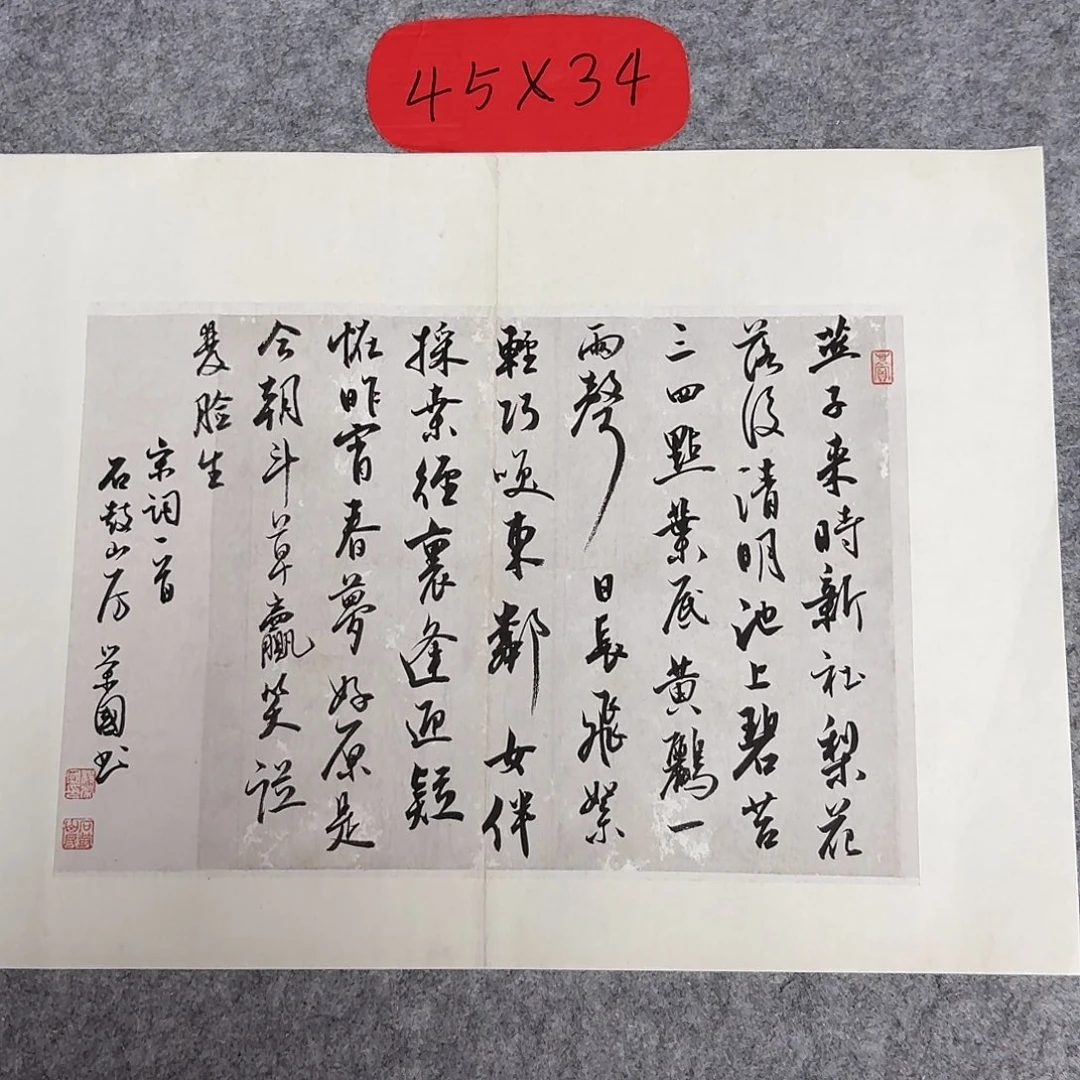 45×34
燕子来時新社梨花
落後清明池上碧苔
三四點葉底黄鸝一
兩聲 日長飛絮
輕巧咲東鄰女伴
採桒徑裏逢迎疑
恠昨宵春夢好原是
今朝斗草贏笑從
雙脸生
宋詞一首
石鼓山房 荣國书